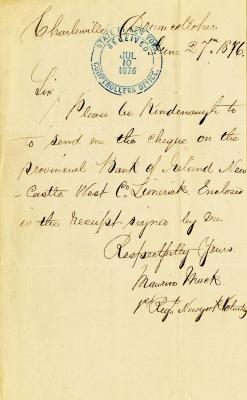 Charleville Drumcolloher
June 27th 1876.
STATE OF NEW YORK
RECEIVED
JUL
10
1876
COMPTROLLERS OFFICE.
Sir
Please be kindenough to
to send me the cheque on the
provincial Bank of Ireland New-
Castle West Co. Limerick. Enclosed
is the Receipt signed by me
Respectfully Yours.
Maurice
1st Regt. Newyork